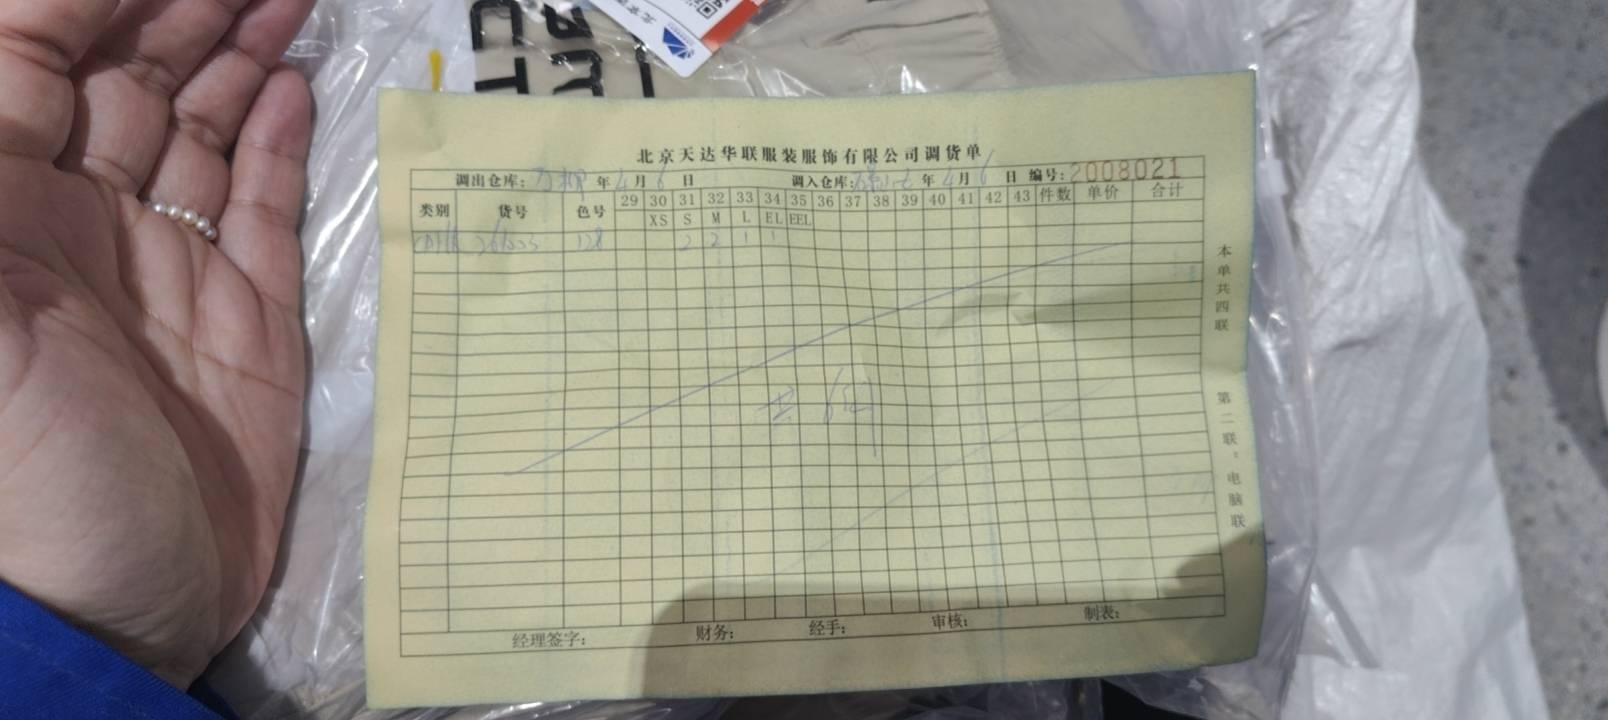 北京天达华联服装服饰有限公司调货单
调出仓库：万柳 年 4月 6日 调入仓库： 年 4月 6日 编号：2008021
类别 货号 色号 29 30 31 32 33 34 35 36 37 38 39 40 41 42 43 件数 单价 合计
XS S M L EL EEL
128 2 2 1 1
共6件
本单共四联
第二联：电脑联
经理签字： 财务： 经手： 审核： 制表：